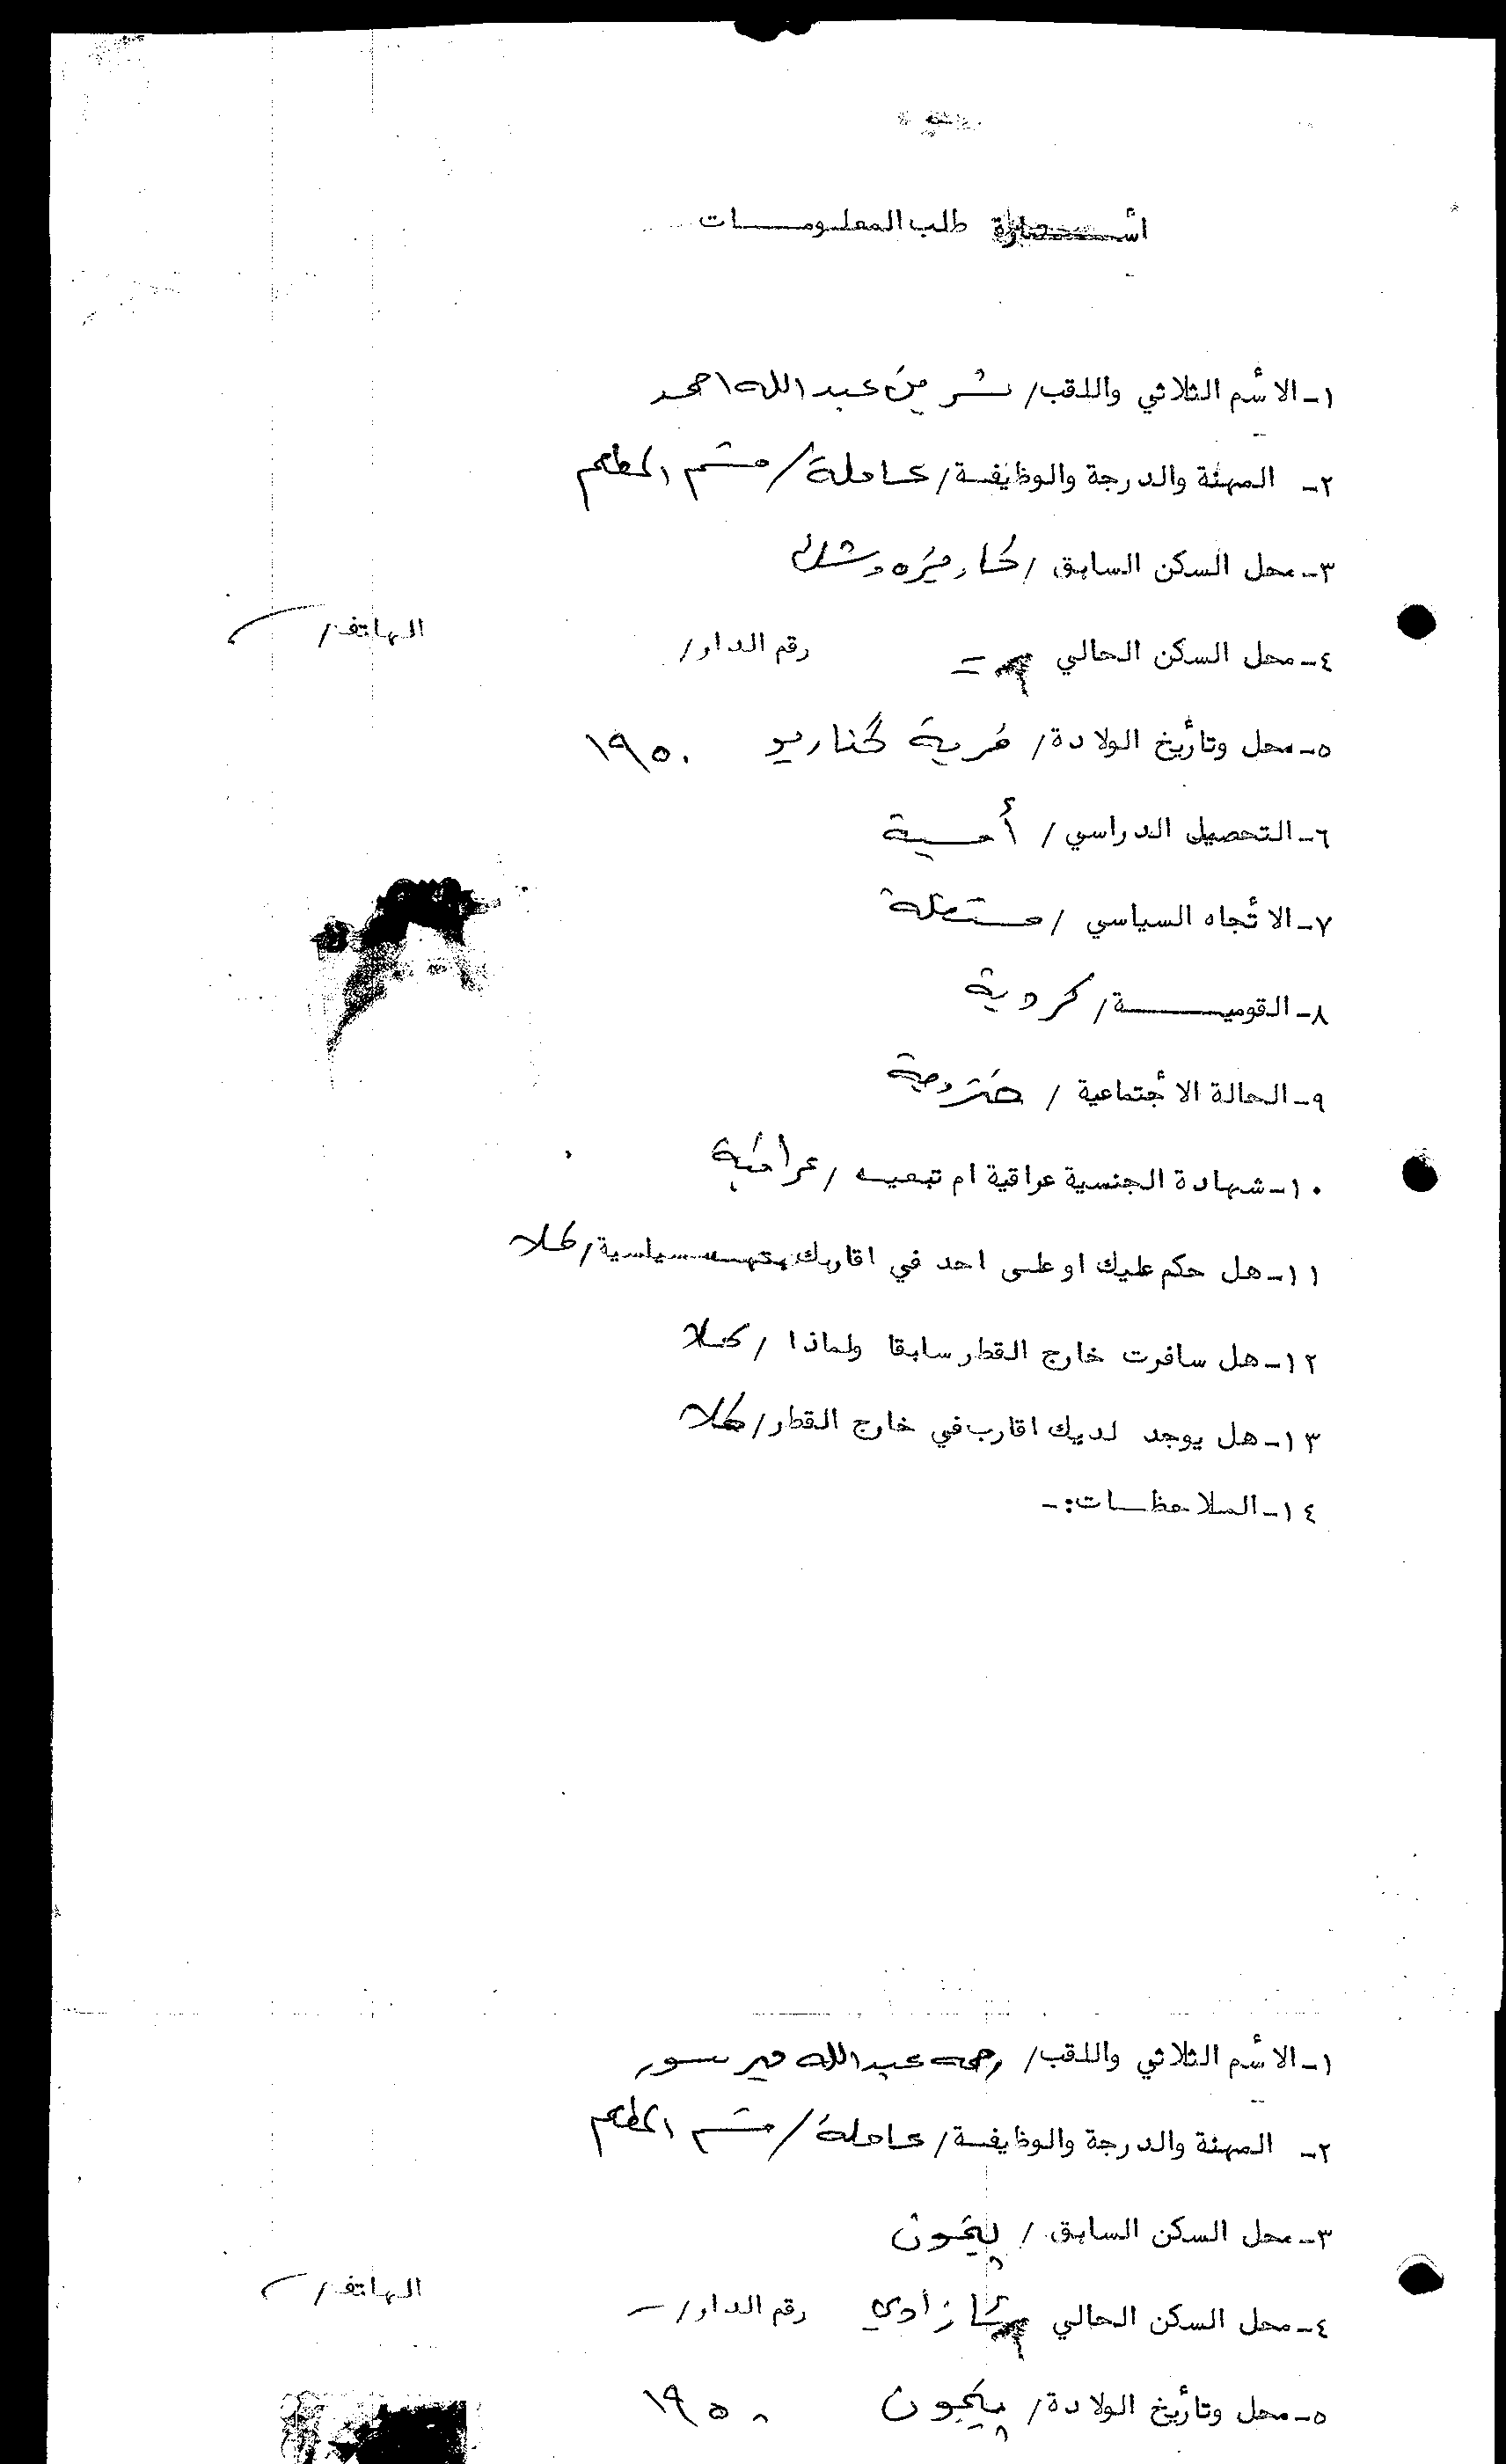 أستمارة طلب المعلومات
١- الأسم الثلاثي واللقب/ نسرين عبدالله احمد
٢- المهنة والدرجة والوظيفة/ عاملة/ قسم المطعم
٣- محل السكن السابق /
٤- محل السكن الحالي = رقم الدار/ الهاتف/
٥- محل وتأريخ الولادة/ قرية ١٩٥٠
٦- التحصيل الدراسي / أمية
٧- الأتجاه السياسي / مستقلة
٨- القومية/ كردية
٩- الحالة الأجتماعية / متزوجة
١٠- شهادة الجنسية عراقية ام تبعيه / عراقية
١١- هل حكم عليك او على احد في اقاربك بتهمه سياسية/ كلا
١٢- هل سافرت خارج القطر سابقا ولماذا / كلا
١٣- هل يوجد لديك اقارب في خارج القطر/ كلا
١٤- الملاحظات:-
١- الأسم الثلاثي واللقب/ عبدالله
٢- المهنة والدرجة والوظيفة/ عاملة/ قسم المطعم
٣- محل السكن السابق /
٤- محل السكن الحالي رقم الدار/ - الهاتف/
٥- محل وتأريخ الولادة/ ١٩٥٠